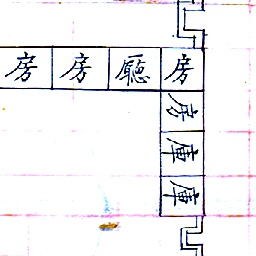 房房廳房
房
庫
庫